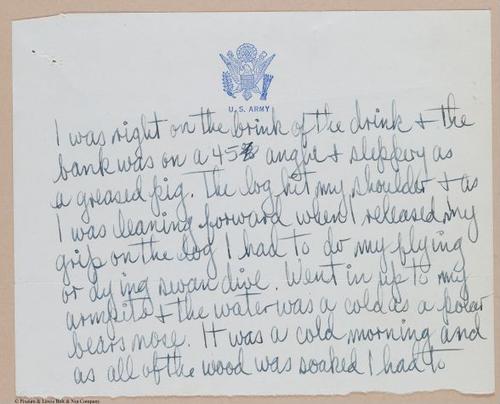 U.S. ARMY
I was right on the brink of the drink + the
bank was on a 45 angle + slippery as
a greased pig. The log hit my shoulder + as
I was leaning forward when I released my
grip on the log I had to do my flying
or dying swan dive. Went in up to my
armpits + the water was a cold as a polar
bears nose. It was a cold morning and
as all of the wood was soaked I had to